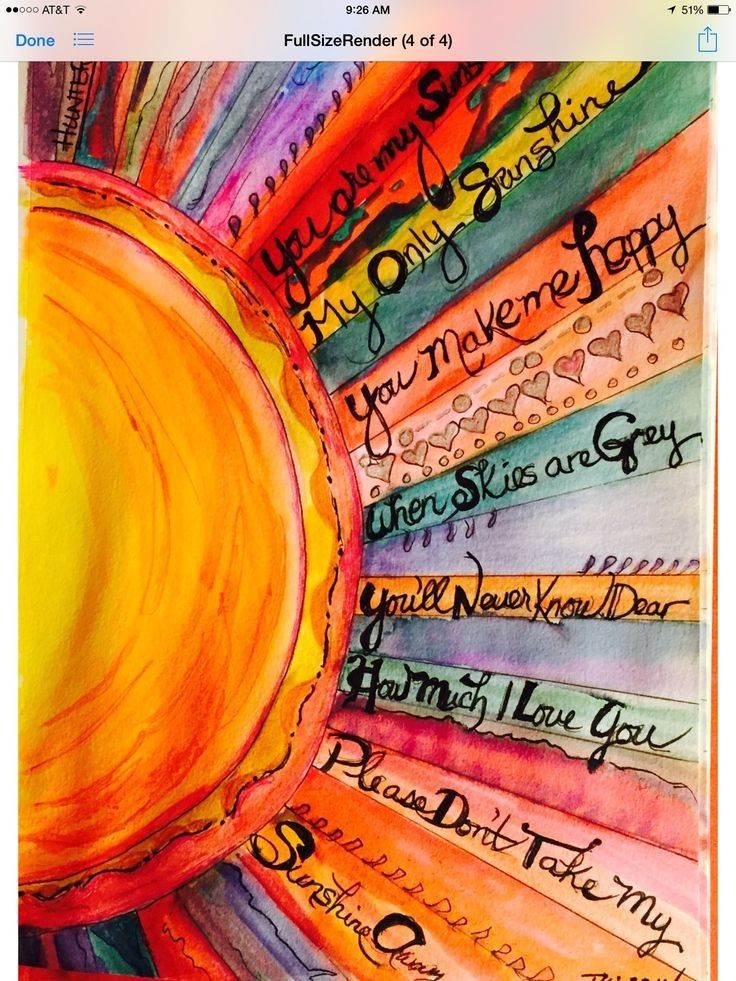 AT&T 9:26 AM 51%
Done FullSizeRender (4 of 4)
HUNTER
You are my Suns
My Only Sunshine
You Make me happy
When Skies are Grey
You'll Never Know Dear
How Much I Love You
Please Don't Take My
Sunshine Away